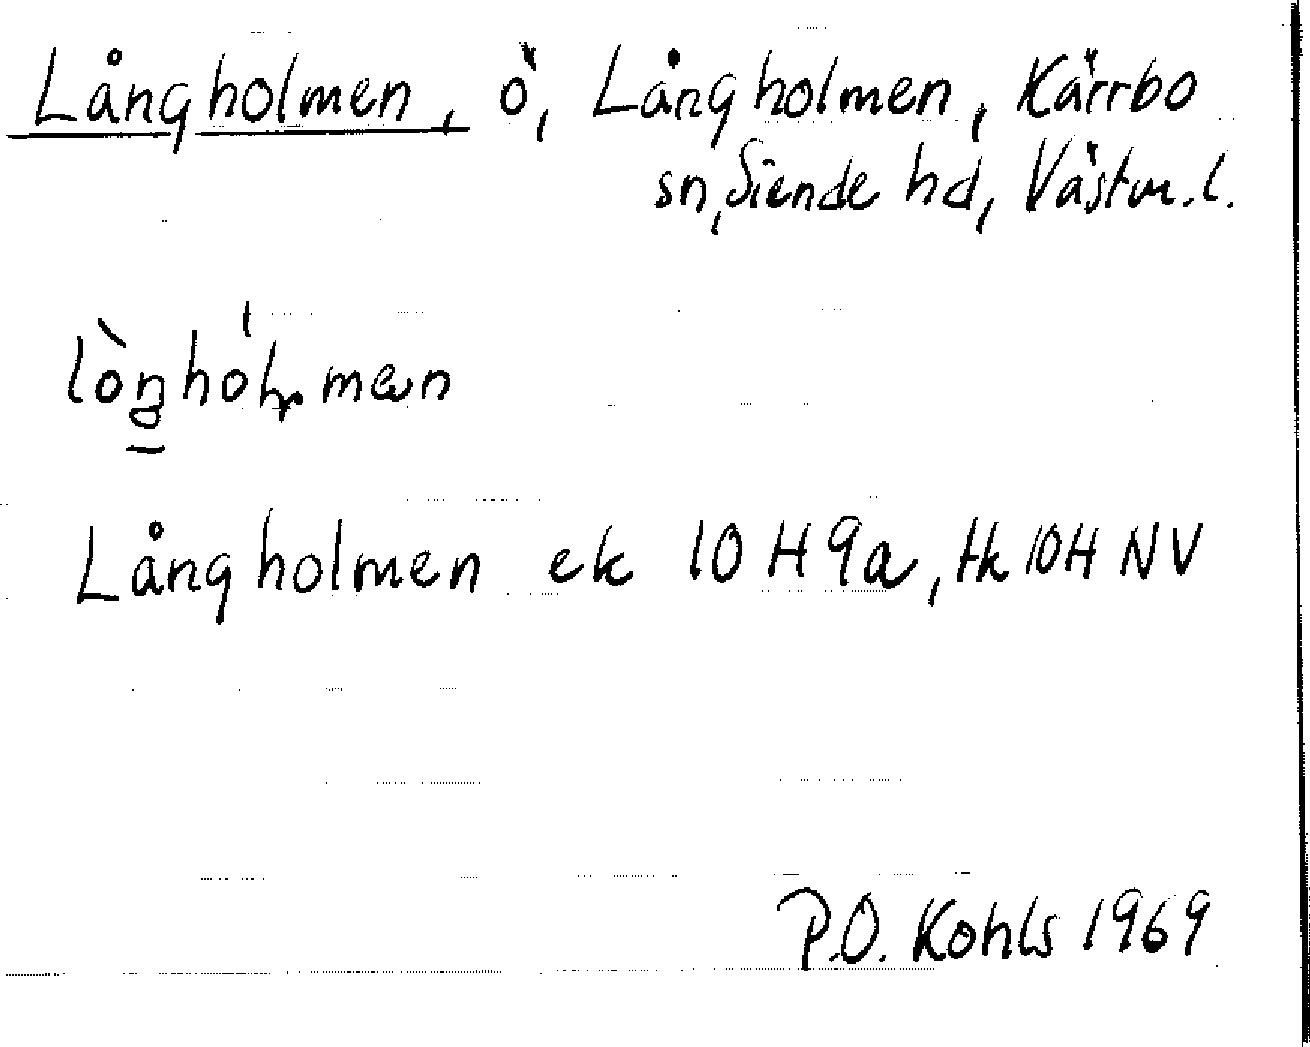 Långholmen, ö, Långholmen, Kärrbo
sn, Siende hd, Västm.l.
Långholmen ek 10 H 9a, tk 10H NV
P.O. Kohls 1969